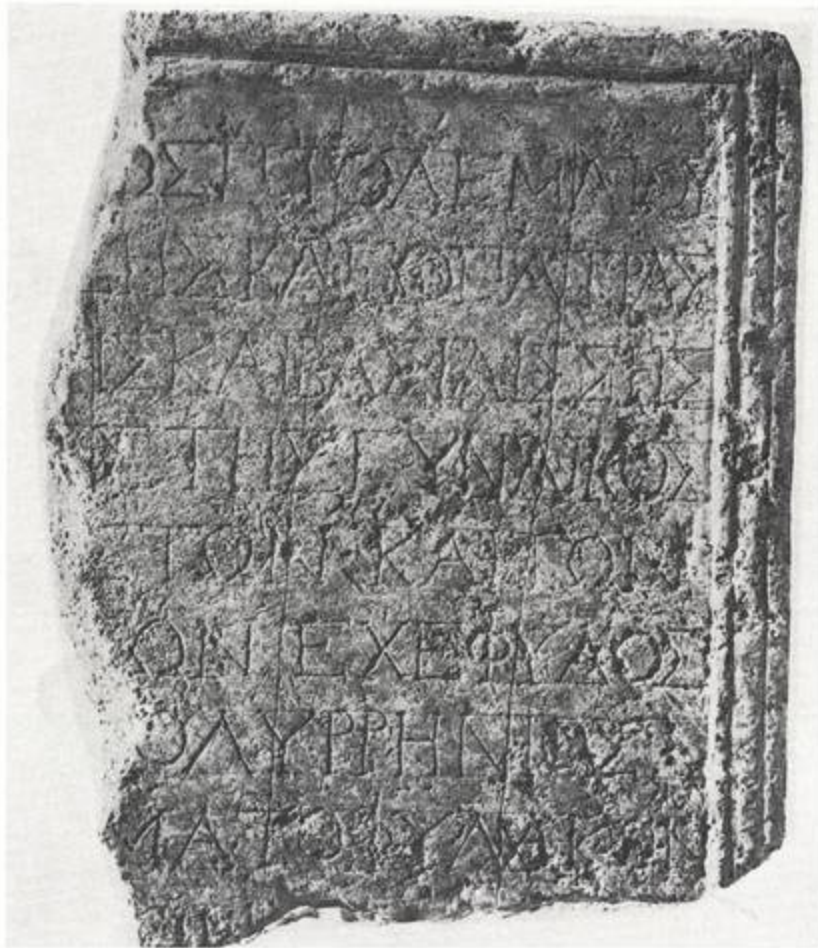 ΩΣ ΠΤΟΛΕΜΑΙΟΥ
ΗΣ ΚΑΙ ΟΠΑΤΡΑΣ
Σ ΚΑΙ ΒΑΣΙΛΙΣΣΗΣ
Σ ΤΗΣ ΓΥΝΑΙΚΟΣ
ΤΩΝ ΚΑΙ ΤΩΝ
ΩΝ ΕΧΕΦΥΛΟΣ
ΟΛΥΡΡΗΝΙΟΣ
ΜΑΤΟΦΥΛΑΚΩΝ